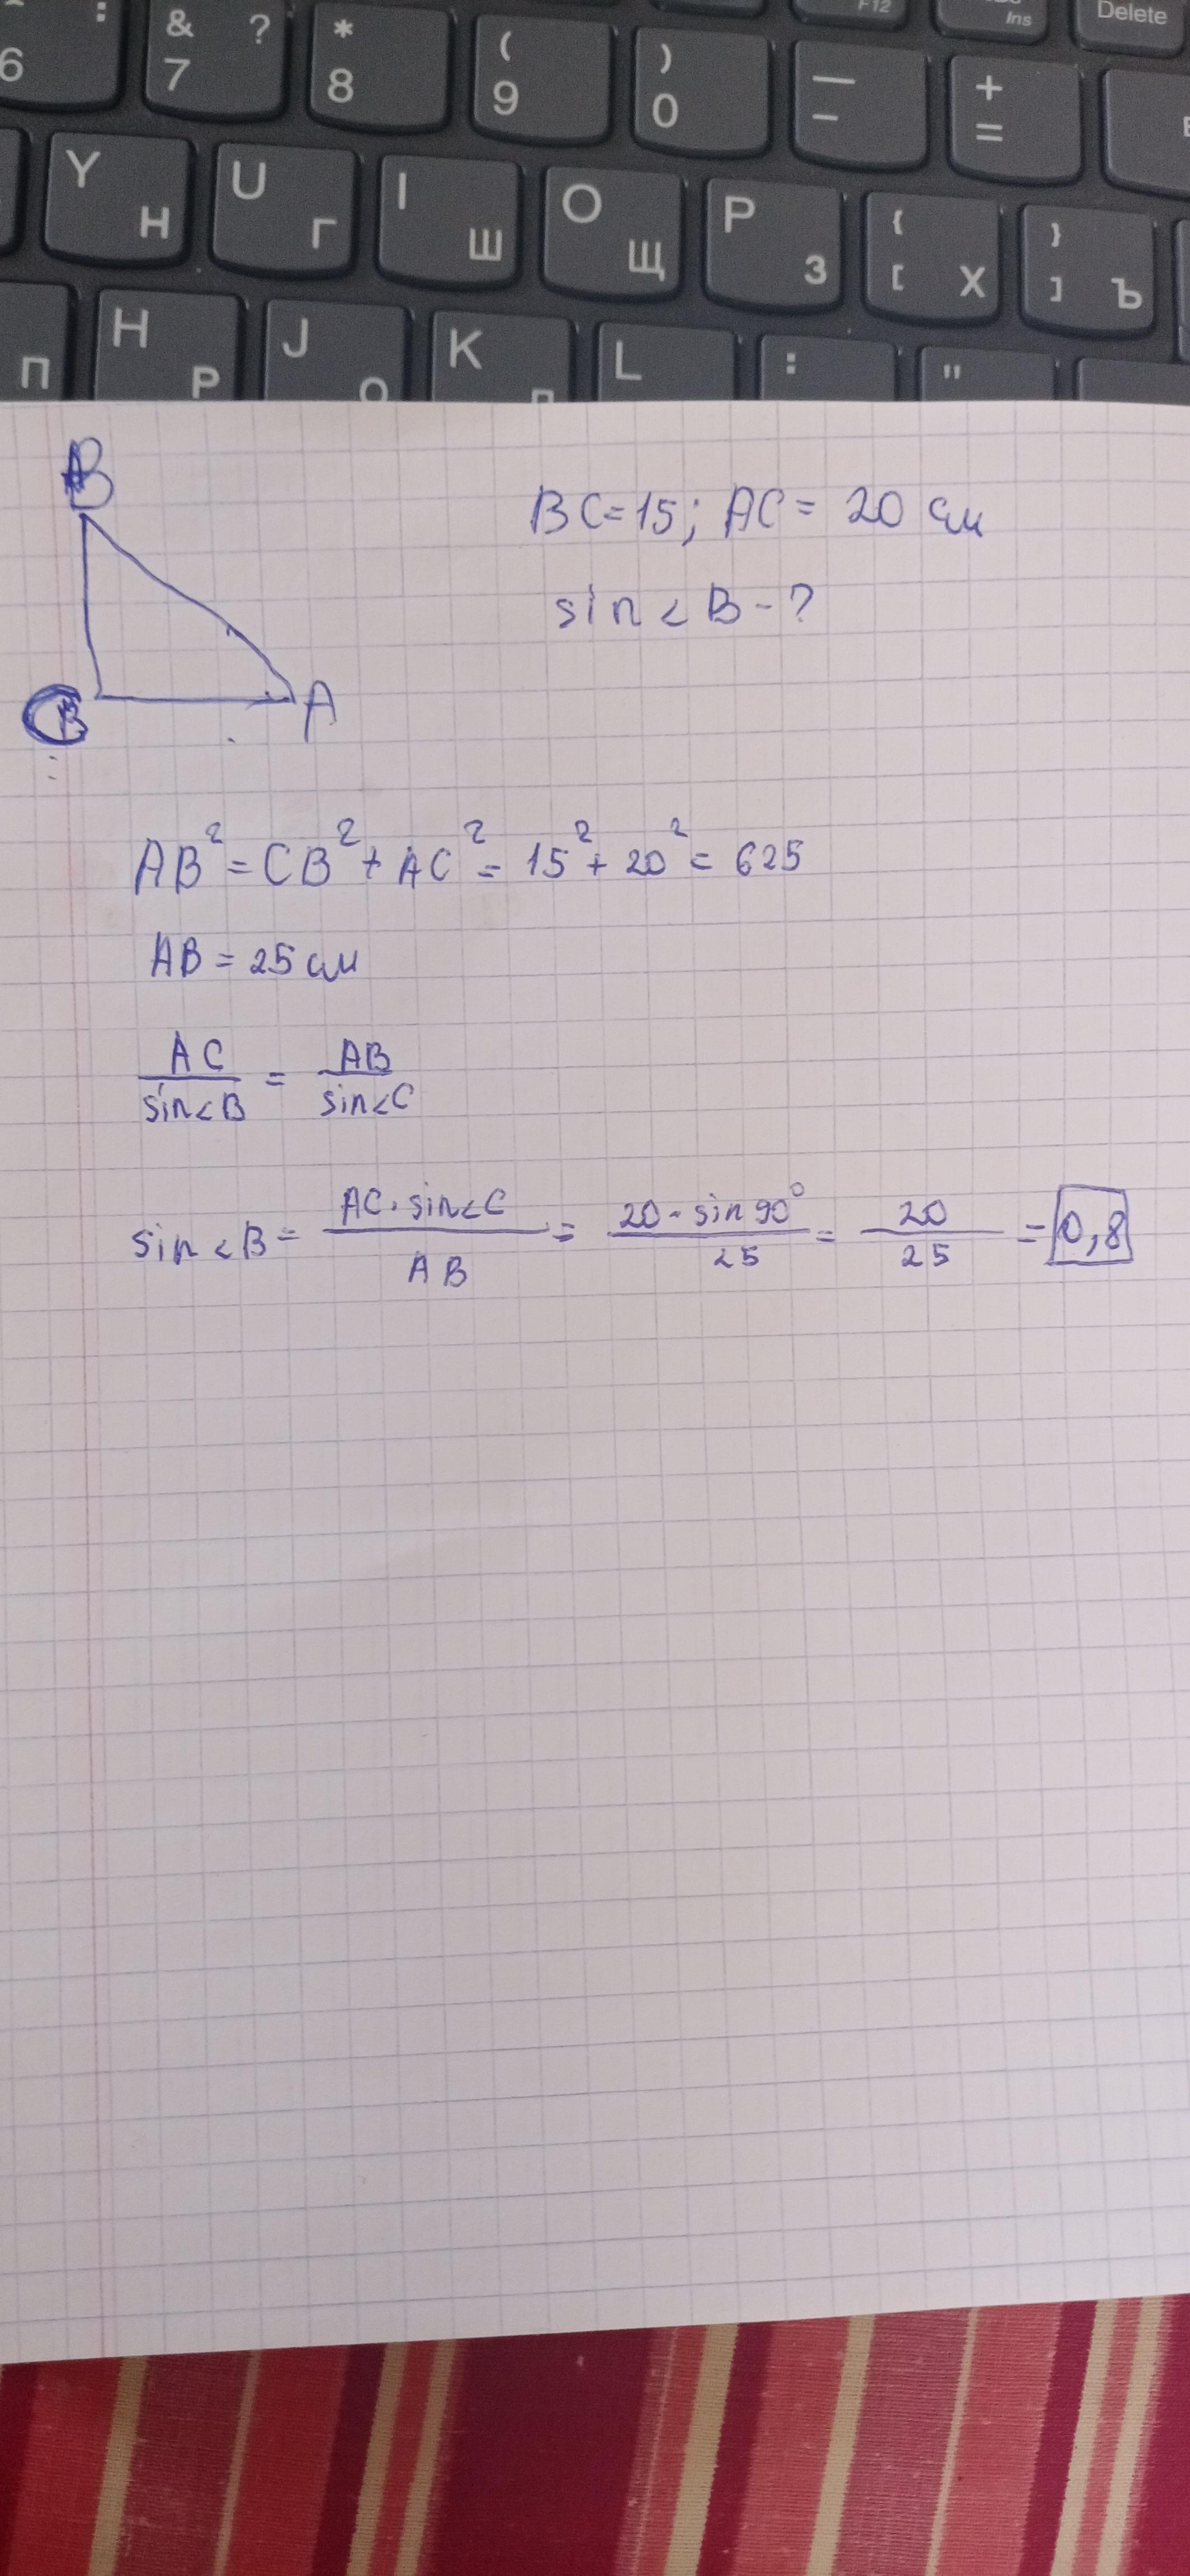 6 :
& ? 7
* 8
( 9
) 0
— -
+ =
F12
Ins
Delete
Y Н
U Г
I Ш
O Щ
P З
{ [ Х
} ] Ъ
П
H Р
J О
K
L
:
"
B
BC=15; AC= 20 см
sin<B-?
C
A
AB²=CB²+AC²=15²+20²=625
AB=25 см
AC/sin<B = AB/sin<C
sin<B= AC·sin<C/AB = 20·sin90°/25 = 20/25 = 0,8